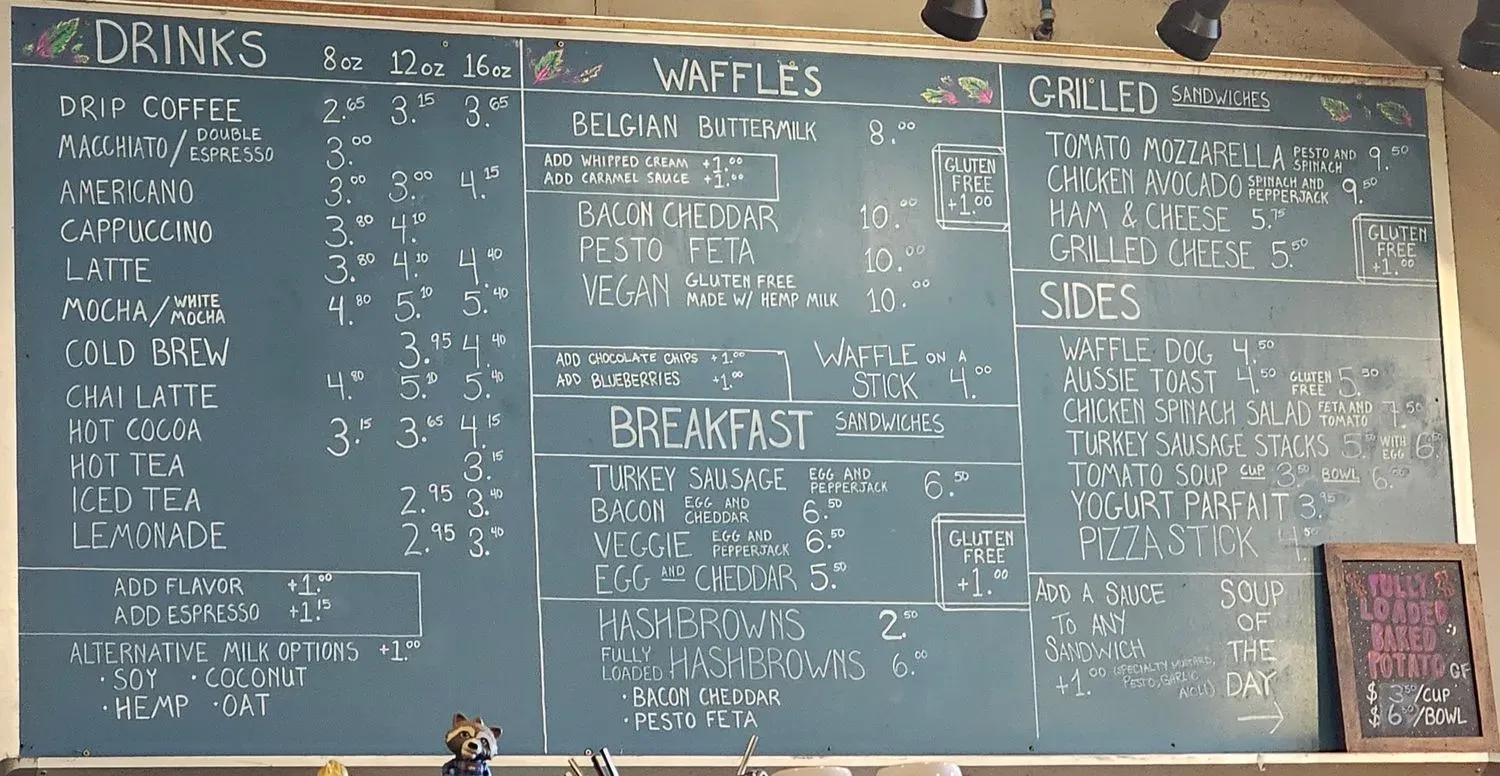 DRINKS 8oz 12oz 16oz
DRIP COFFEE 2.65 3.15 3.65
MACCHIATO/DOUBLE ESPRESSO 3.00
AMERICANO 3.00 3.00 4.15
CAPPUCCINO 3.80 4.10
LATTE 3.80 4.10 4.40
MOCHA/WHITE MOCHA 4.80 5.10 5.40
COLD BREW 3.95 4.40
CHAI LATTE 4.80 5.10 5.40
HOT COCOA 3.15 3.65 4.15
HOT TEA 3.15
ICED TEA 2.95 3.40
LEMONADE 2.95 3.40
ADD FLAVOR +1.00
ADD ESPRESSO +1.15
ALTERNATIVE MILK OPTIONS +1.00
· SOY · COCONUT
· HEMP · OAT
WAFFLES
BELGIAN BUTTERMILK 8.00
ADD WHIPPED CREAM +1.00
ADD CARAMEL SAUCE +1.00
GLUTEN
FREE
+1.00
BACON CHEDDAR 10.00
PESTO FETA 10.00
VEGAN GLUTEN FREE MADE W/ HEMP MILK 10.00
ADD CHOCOLATE CHIPS +1.00
ADD BLUEBERRIES +1.00
WAFFLE ON A
STICK 4.00
BREAKFAST SANDWICHES
TURKEY SAUSAGE EGG AND PEPPERJACK 6.50
BACON EGG AND CHEDDAR 6.50
VEGGIE EGG AND PEPPERJACK 6.50
EGG AND CHEDDAR 5.50
GLUTEN
FREE
+1.00
HASHBROWNS 2.50
FULLY LOADED HASHBROWNS 6.00
· BACON CHEDDAR
· PESTO FETA
GRILLED SANDWICHES
TOMATO MOZZARELLA PESTO AND SPINACH 9.50
CHICKEN AVOCADO SPINACH AND PEPPERJACK 9.50
HAM & CHEESE 5.75
GRILLED CHEESE 5.50
GLUTEN
FREE
+1.00
SIDES
WAFFLE DOG 4.50
AUSSIE TOAST 4.50 GLUTEN FREE 5.50
CHICKEN SPINACH SALAD FETA AND TOMATO 7.50
TURKEY SAUSAGE STACKS WITH EGG
TOMATO SOUP CUP 3.50 BOWL
YOGURT PARFAIT 3.95
PIZZA STICK
ADD A SAUCE
TO ANY
SANDWICH
+1.00 (SPECIALTY MUSTARD,
PESTO, GARLIC
AIOLI)
SOUP
OF
THE
DAY
FULLY
LOADED
BAKED
POTATO GF
$ 3.50/CUP
$ 6.50/BOWL